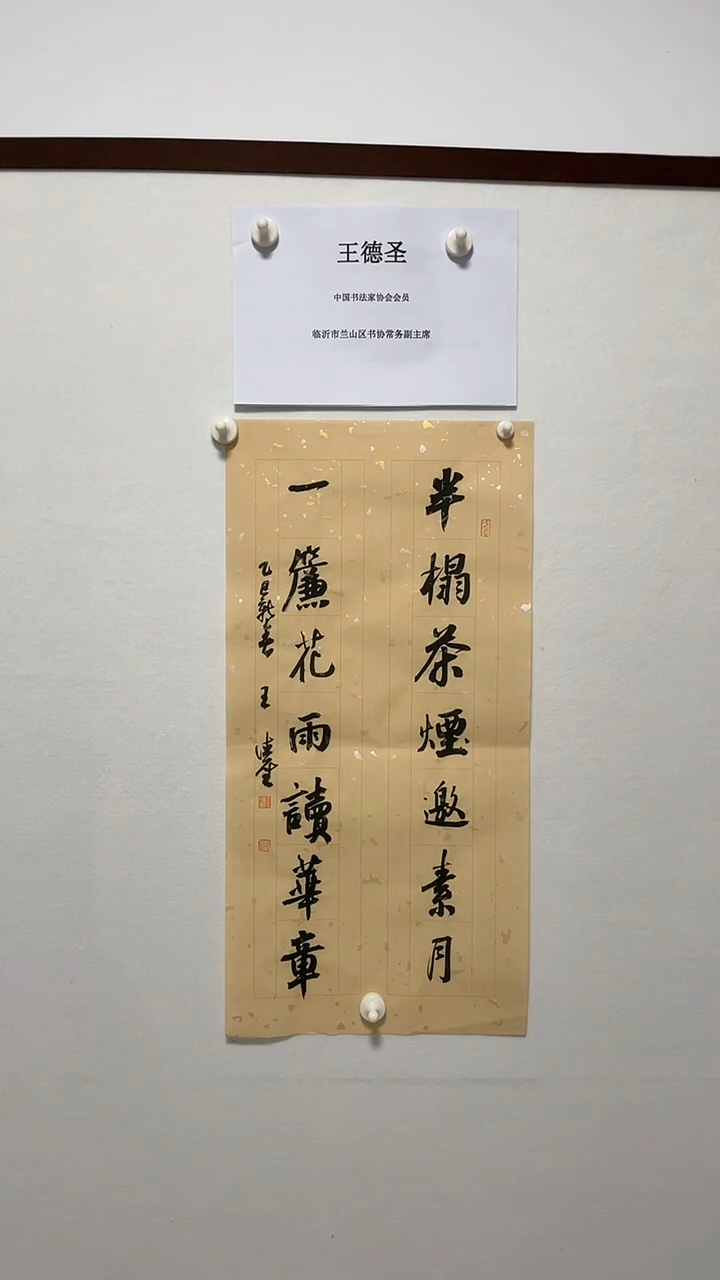 王德圣
中国书法家协会会员
临沂市兰山区书协常务副主席
半榻茶煙邀素月
一簾花雨讀華章
乙巳新春 王德聖